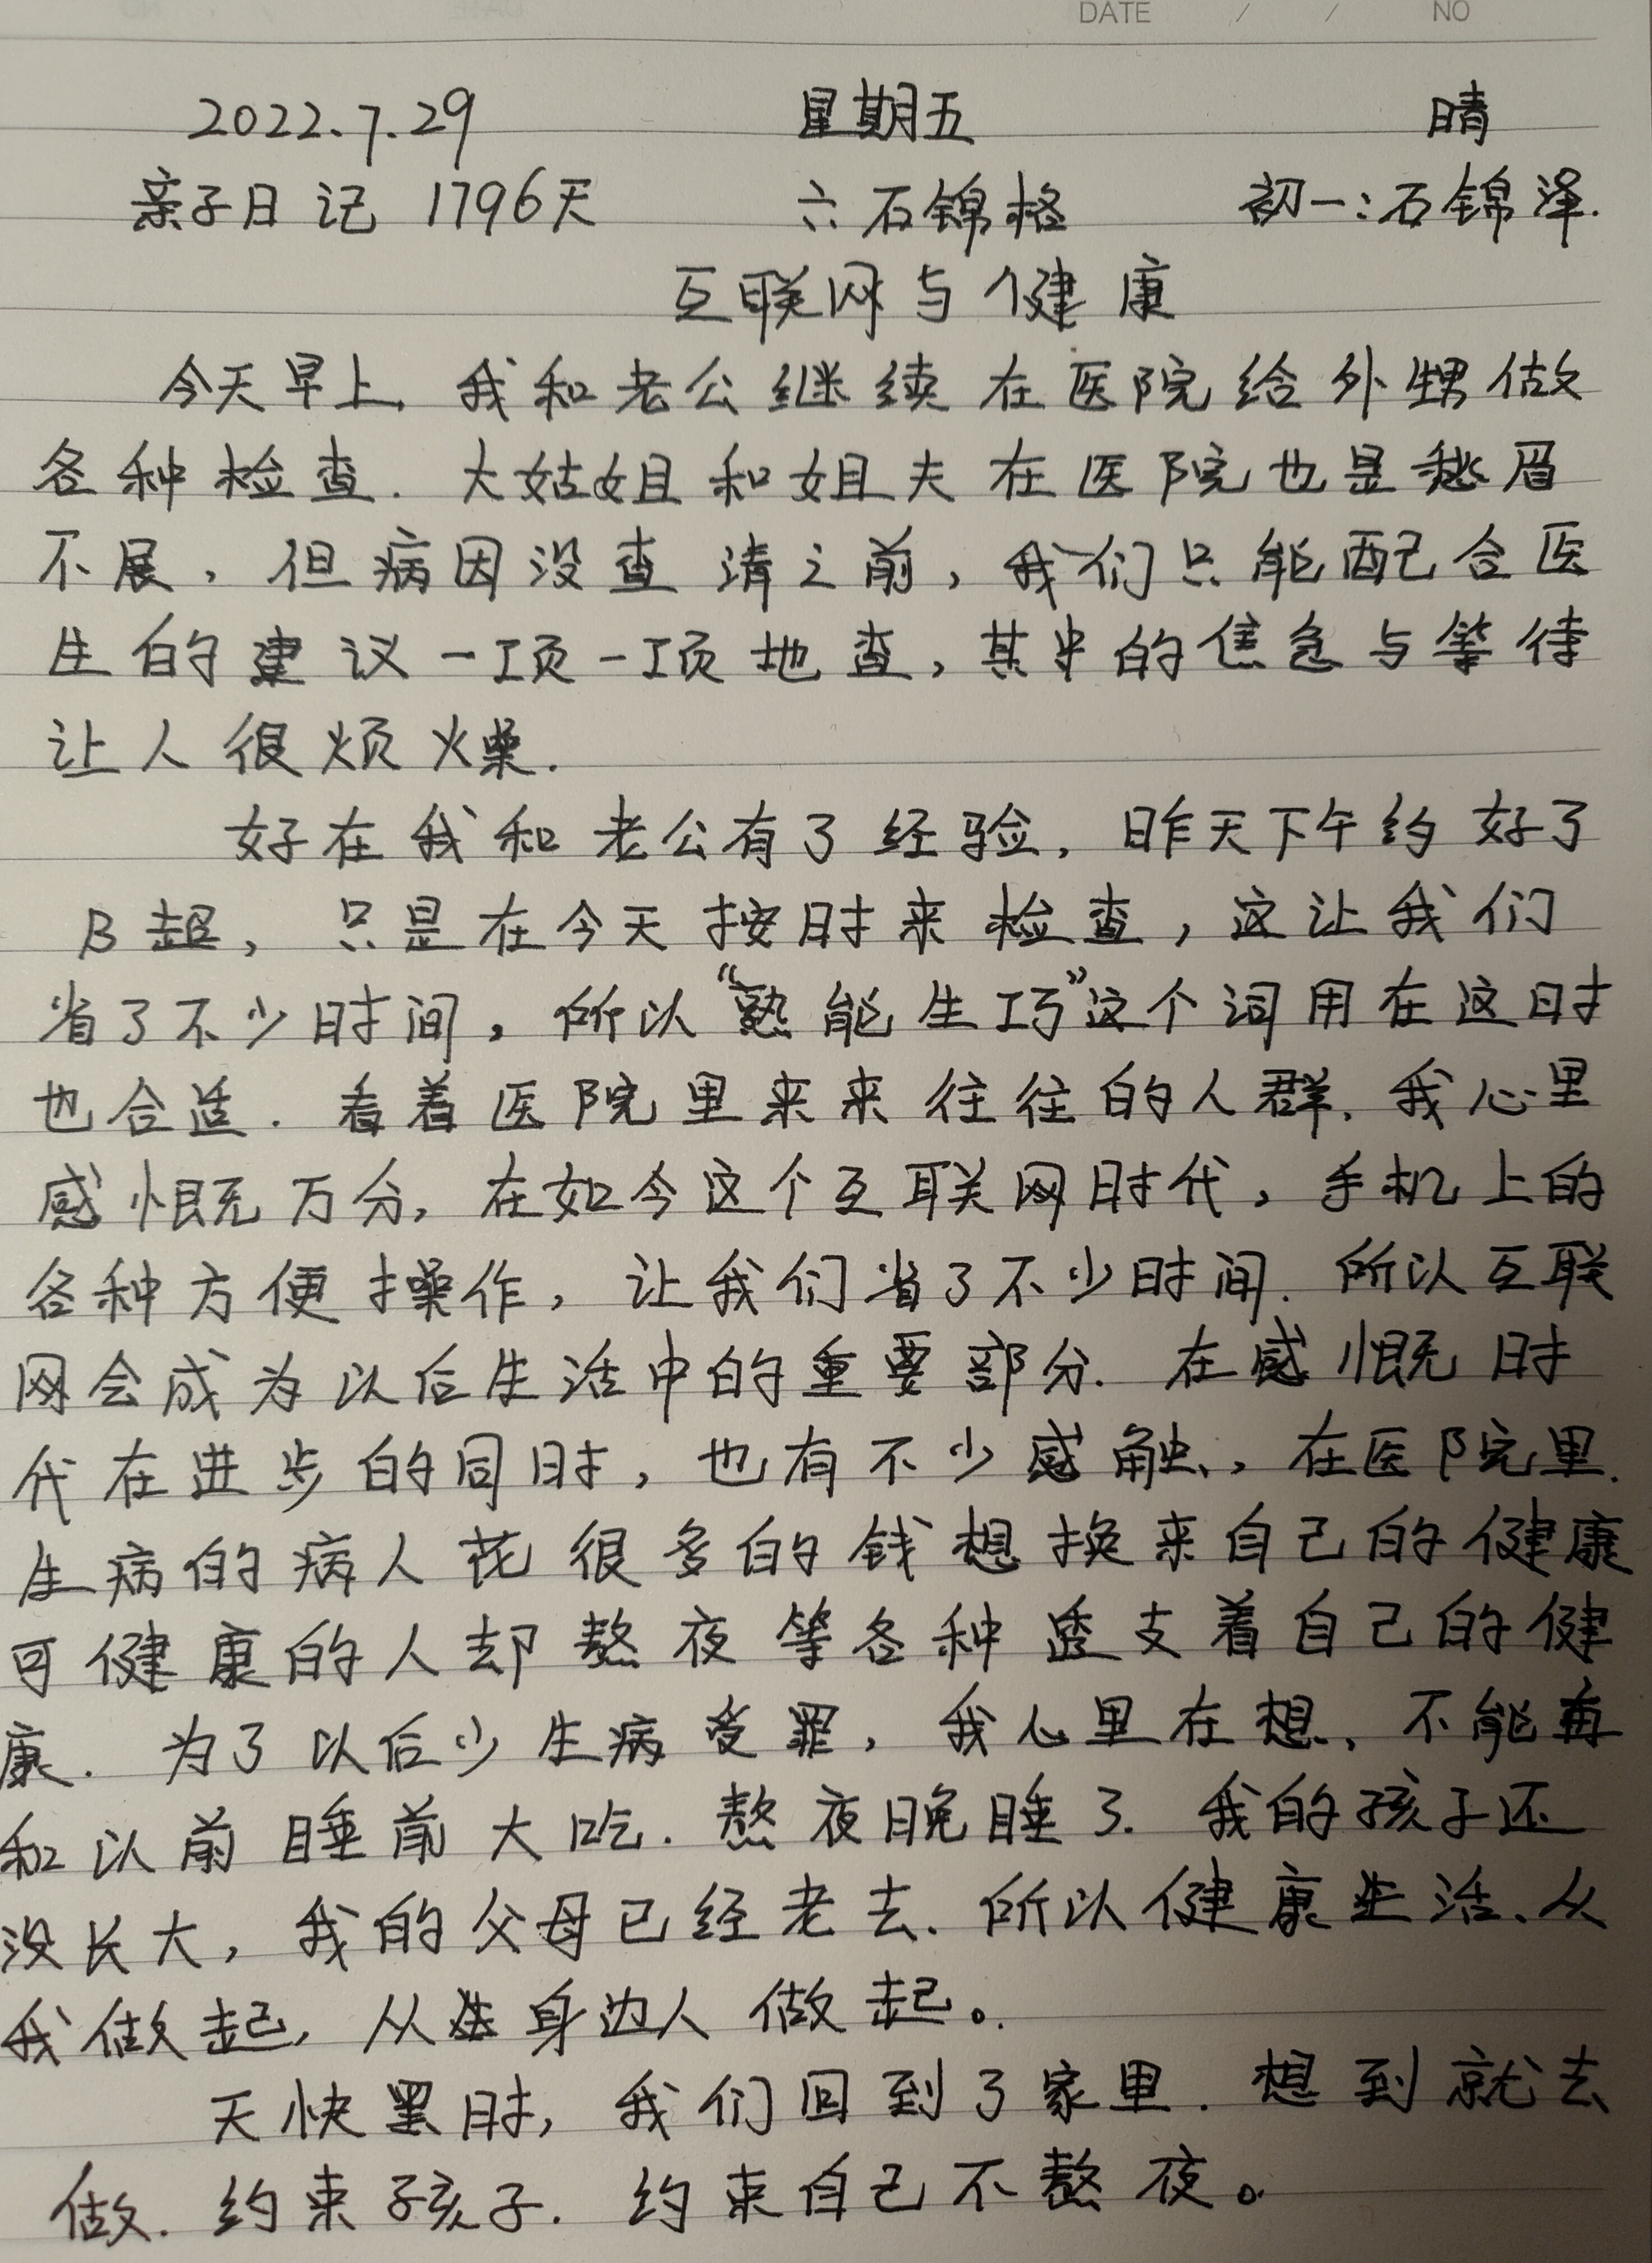 DATE / / NO
2022.7.29 星期五 晴
亲子日记 1796天 六石锦格 初一:石锦泽.
互联网与健康
今天早上,我和老公继续在医院给外甥做
各种检查.大姑姐和姐夫在医院也是愁眉
不展,但病因没查清之前,我们只能配合医
生的建议一项一项地查,其中的焦急与等待
让人很烦燥.
好在我和老公有了经验,昨天下午约好了
B超,只是在今天按时来检查,这让我们
省了不少时间,所以“熟能生巧”这个词用在这时
也合适.看着医院里来来往往的人群,我心里
感慨万分,在如今这个互联网时代,手机上的
各种方便操作,让我们省了不少时间.所以互联
网会成为以后生活中的重要部分.在感慨时
代在进步的同时,也有不少感触,在医院里.
生病的病人花很多的钱想换来自己的健康
可健康的人却熬夜等各种透支着自己的健
康.为了以后少生病受罪,我心里在想、不能再
和以前睡前大吃.熬夜晚睡了.我的孩子还
没长大,我的父母已经老去.所以健康生活、从
我做起,从身边人做起。
天快黑时,我们回到了家里.想到就去
做.约束孩子.约束自己不熬夜。